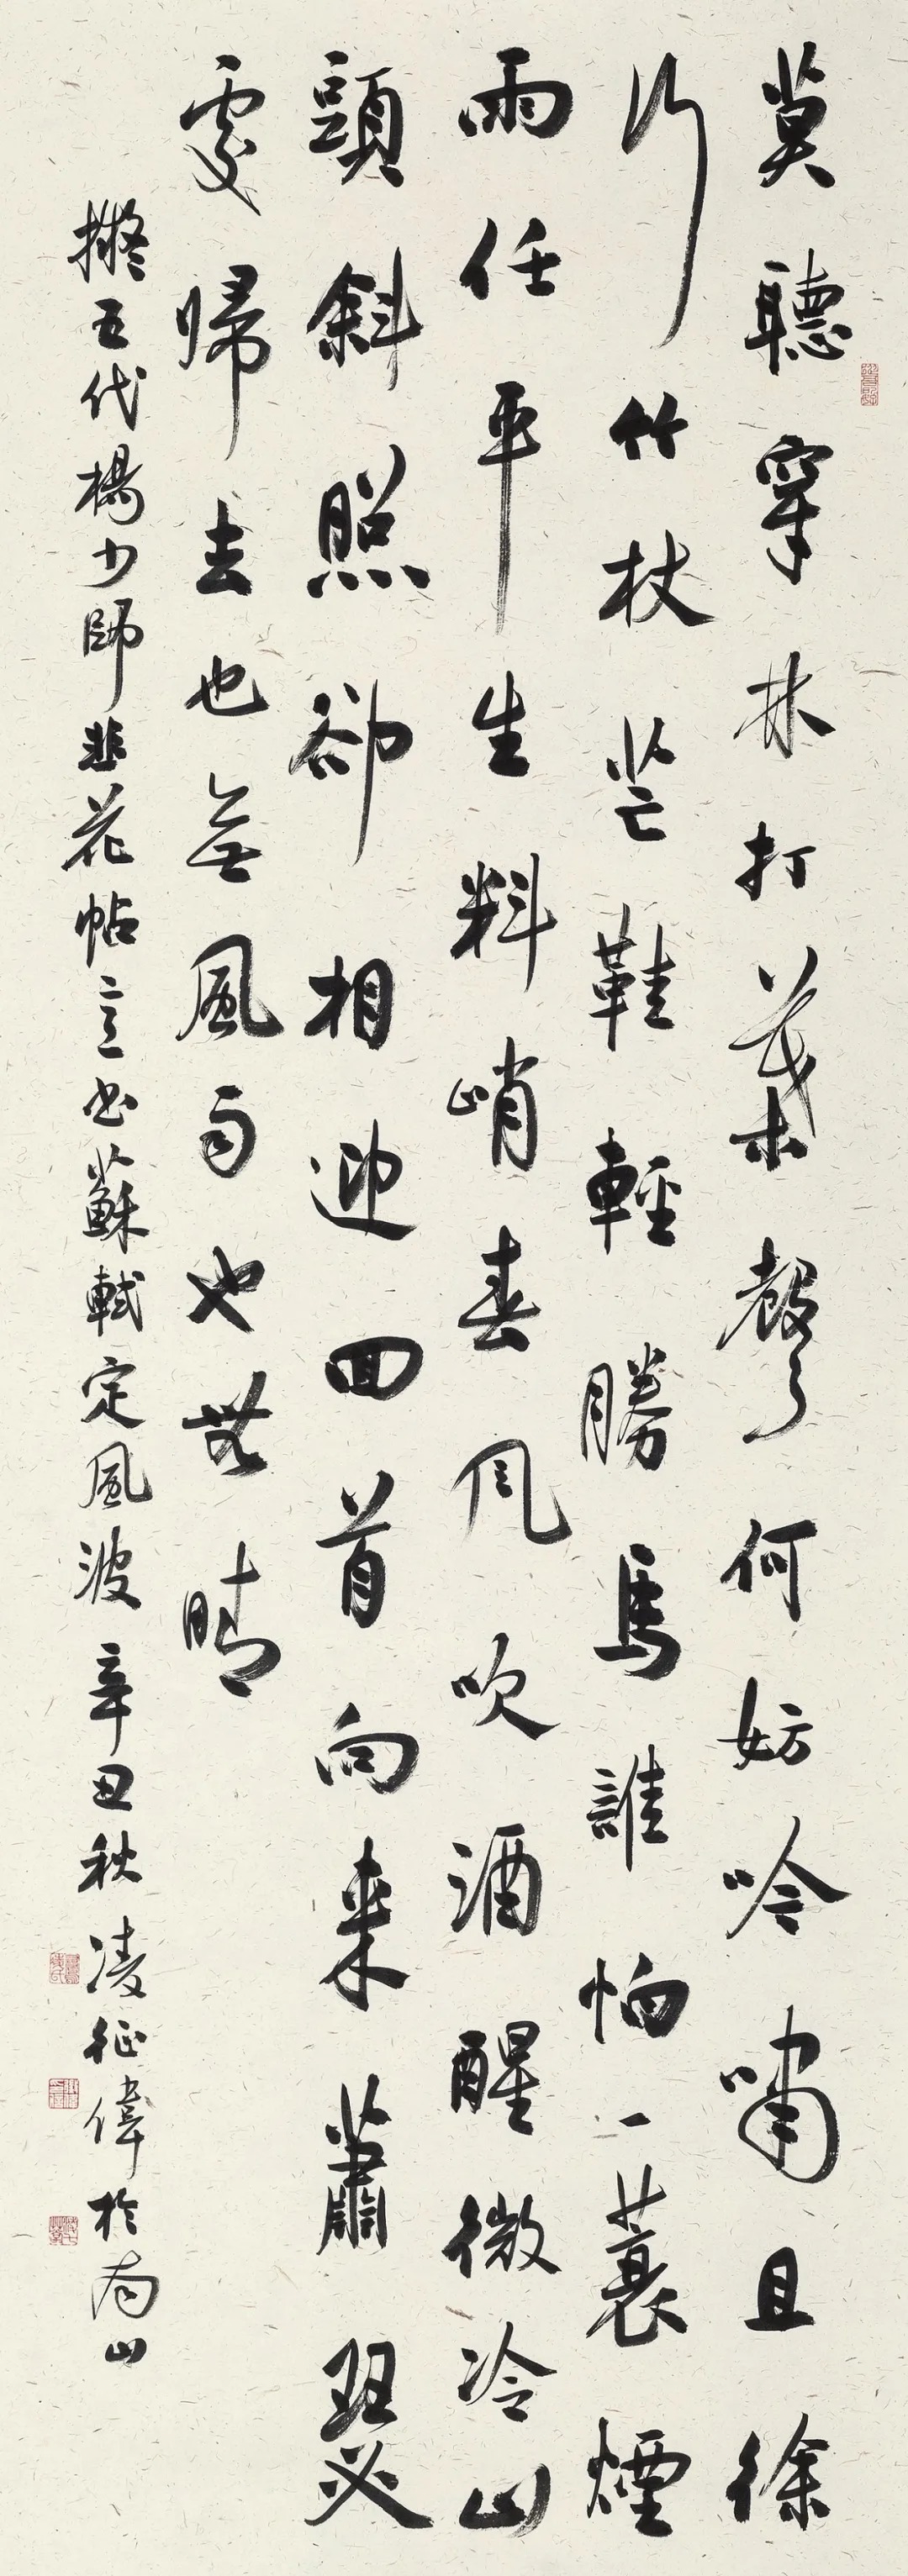 莫聽穿林打葉聲何妨吟嘯且徐
行竹杖芒鞋輕勝馬誰怕一蓑煙
雨任平生料峭春風吹酒醒微冷山
頭斜照卻相迎回首向来蕭瑟
處歸去也無風雨也無晴
擬五代楊少師韭花帖意书蘇軾定風波辛丑秋凌征偉於南山